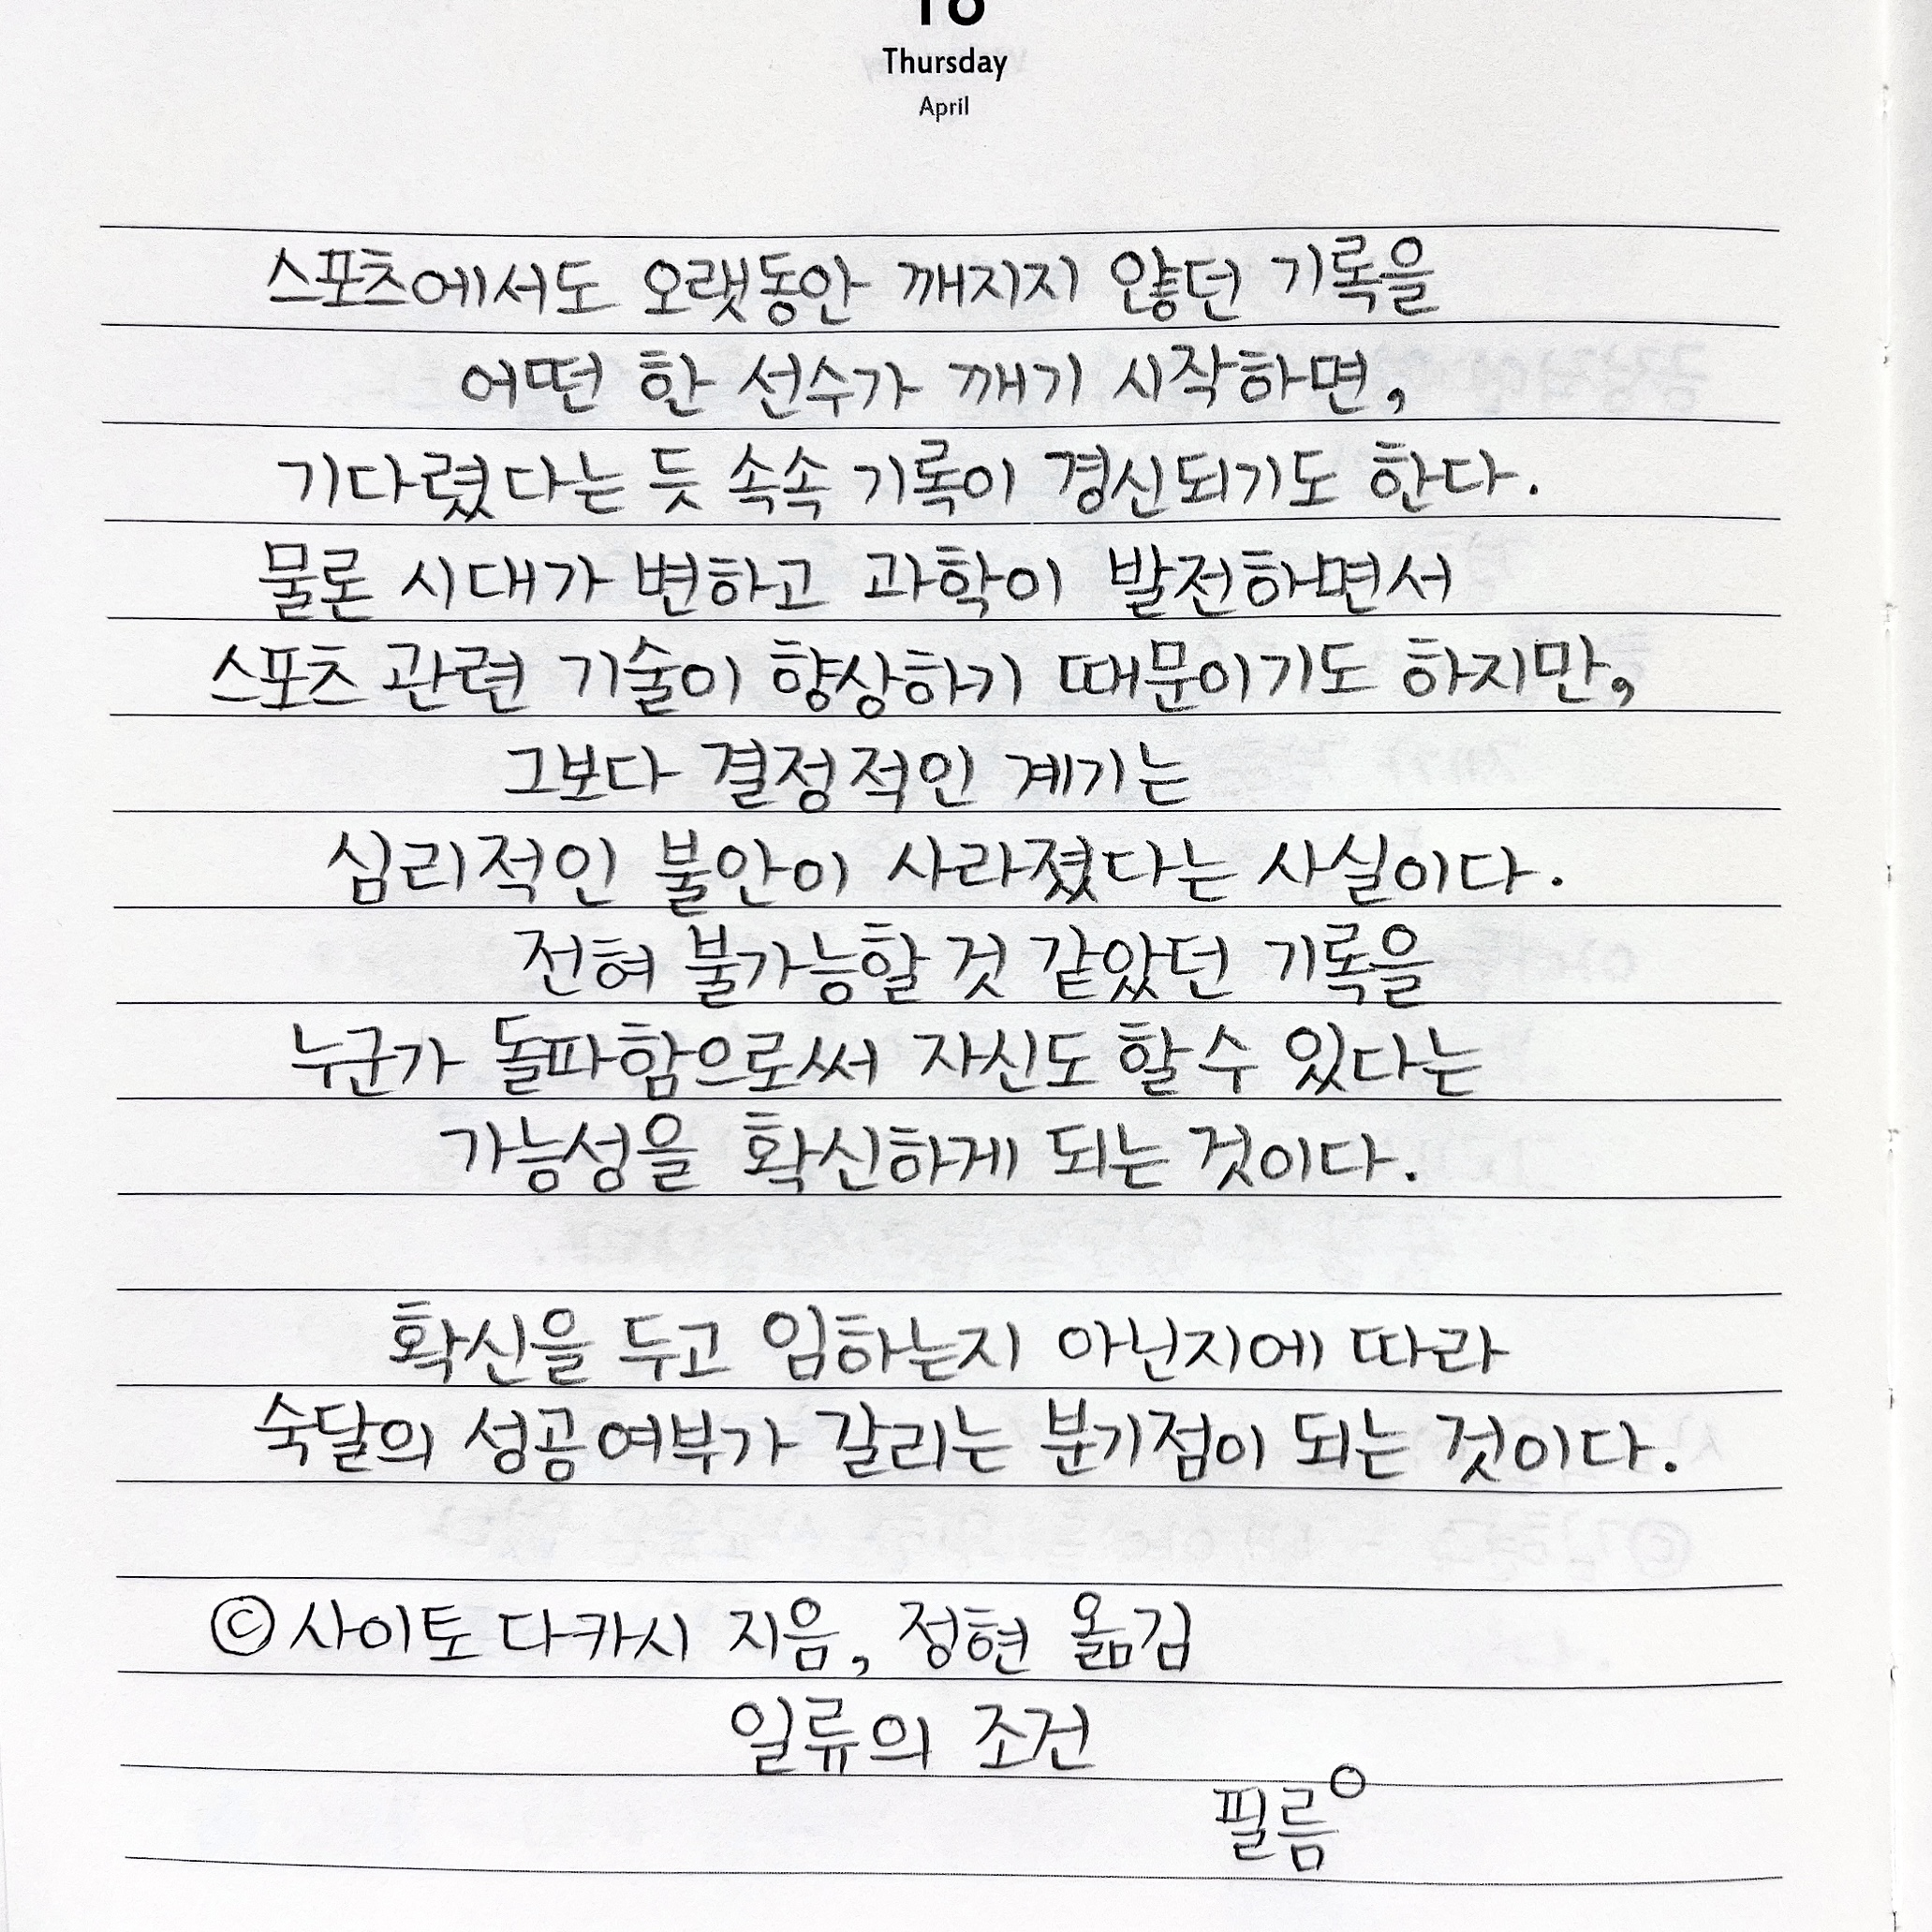 18
Thursday
April
스포츠에서도 오랫동안 깨지지 않던 기록을
어떤 한 선수가 깨기 시작하면,
기다렸다는 듯 속속 기록이 경신되기도 한다.
물론 시대가 변하고 과학이 발전하면서
스포츠 관련 기술이 향상하기 때문이기도 하지만,
그보다 결정적인 계기는
심리적인 불안이 사라졌다는 사실이다.
전혀 불가능할 것 같았던 기록을
누군가 돌파함으로써 자신도 할 수 있다는
가능성을 확신하게 되는 것이다.
확신을 두고 임하는지 아닌지에 따라
숙달의 성공여부가 갈리는 분기점이 되는 것이다.
ⓒ사이토 다카시 지음, 정현 옮김
일류의 조건
필름